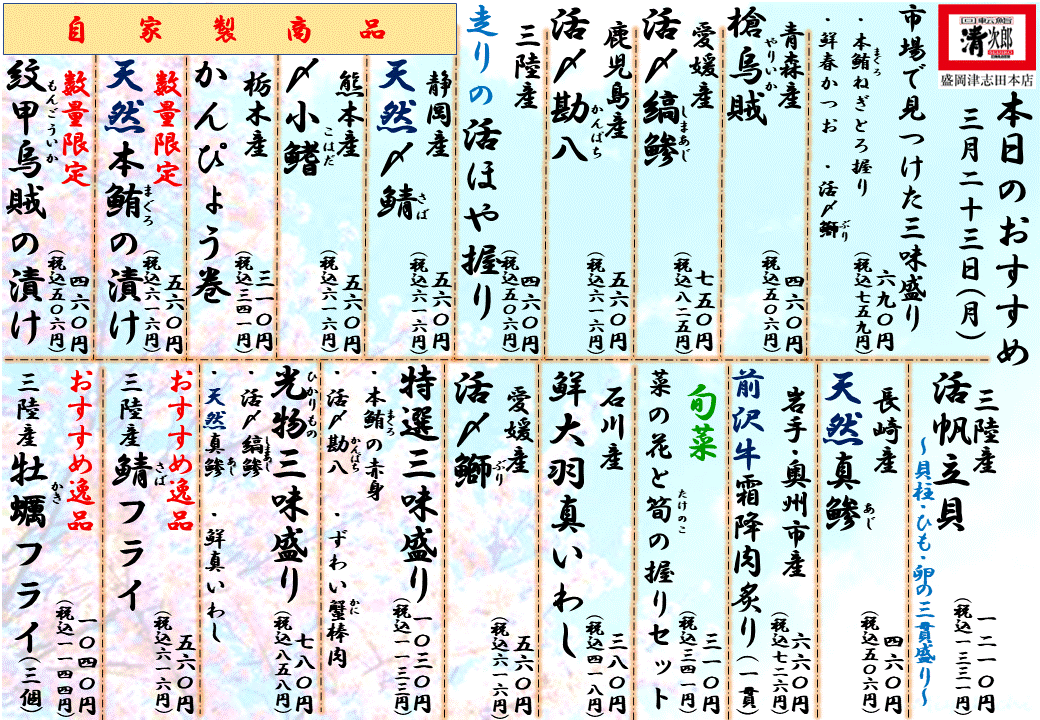 回転鮨
清次郎
盛岡津志田本店
本日のおすすめ
三月二十三日(月)
市場で見つけた三味盛り
・本鮪ねぎとろ握り
まぐろ
・鮮春かつお ・活〆鰤
ぶり
六九〇円
(税込七五九円)
青森産
槍烏賊
やりいか
四六〇円
(税込五〇六円)
愛媛産
活〆縞鯵
しまあじ
七五〇円
(税込八二五円)
鹿児島産
活〆勘八
かんぱち
五六〇円
(税込六一六円)
三陸産
走りの活ほや握り
四六〇円
(税込五〇六円)
自家製商品
静岡産
天然〆鯖
さば
五六〇円
(税込六一六円)
熊本産
〆小鰭
こはだ
五六〇円
(税込六一六円)
栃木産
かんぴょう巻
三一〇円
(税込三四一円)
数量限定
天然本鮪の漬け
まぐろ
五六〇円
(税込六一六円)
数量限定
紋甲烏賊の漬け
もんごういか
四六〇円
(税込五〇六円)
三陸産
活帆立貝
~貝柱・ひも・卵の三貫盛り~
一二一〇円
(税込一三三一円)
長崎産
天然真鯵
あじ
四六〇円
(税込五〇六円)
岩手・奥州市産
前沢牛霜降肉炙り(一貫)
六六〇円
(税込七二六円)
旬菜
菜の花と筍の握りセット
たけのこ
三一〇円
(税込三四一円)
石川産
鮮大羽真いわし
三八〇円
(税込四一八円)
愛媛産
活〆鰤
ぶり
五六〇円
(税込六一六円)
特選三味盛り
・本鮪の赤身
まぐろ
・活〆勘八 ・ずわい蟹棒肉
かんぱち
かに
一〇三〇円
(税込一一三三円)
光物三味盛り
ひかりもの
・活〆縞鯵
しまあじ
・天然真鯵 ・鮮真いわし
あじ
七八〇円
(税込八五八円)
おすすめ逸品
三陸産 鯖フライ
さば
五六〇円
(税込六一六円)
おすすめ逸品
三陸産 牡蠣フライ(三個)
かき
一〇四〇円
(税込一一四四円)